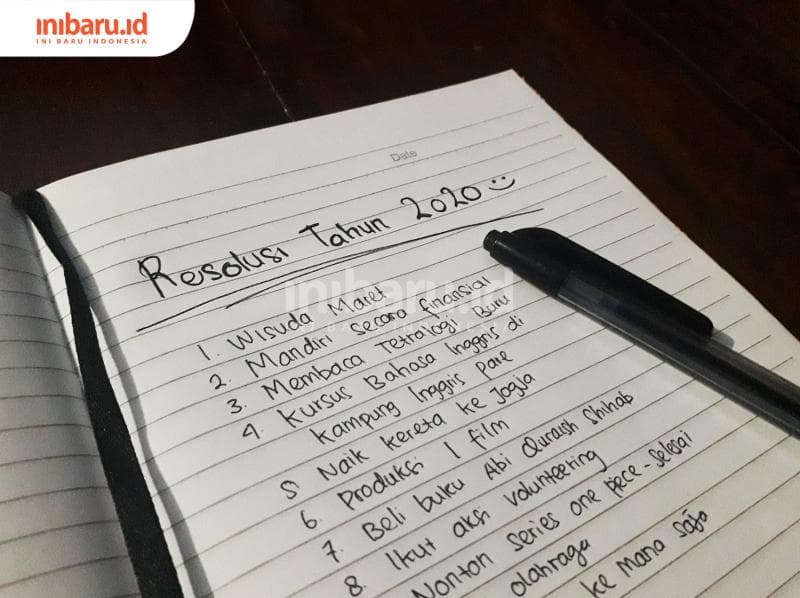 inibaru.id
INI BARU INDONESIA
Date
Resolusi Tahun 2020
inibaru.id
INI BARU INDONESIA
1. Wisuda Maret
2. Mandiri secara finansial
3. Membaca Tetralogi Buru
4. Kursus Bahasa Inggris di
kampung Inggris Pare
5 Naik kereta ke Jogja
6. Produksi 1 film
7. Beli buku Abi Quraish Shihab
8. Ikut aksi volunteering
Nonton series one piece - selesai
olahraga
ke mana saja